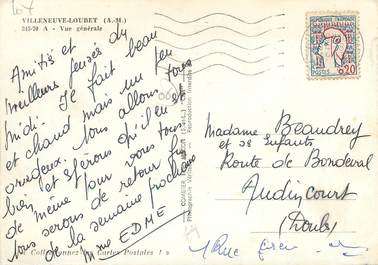 VILLENEUVE-LOUBET (A.-M.)
245-70 A - Vue générale
Amitiés et
meilleures pensées du
midi. Il fait beau
et chaud mais un peu
orageux. Nous allons tous
bien et espérons qu'il en est
de même pour vous tous
nous serons de retour fin
de la semaine prochaine
Mme EDMÉ
« Collectionnez les Cartes Postales ! »
REPUBLIQUE FRANÇAISE
POSTES 0,20
Madame Beaudrey
et ses Enfants
Route de Bondeval
Audincourt
(Doubs)
1 Rue